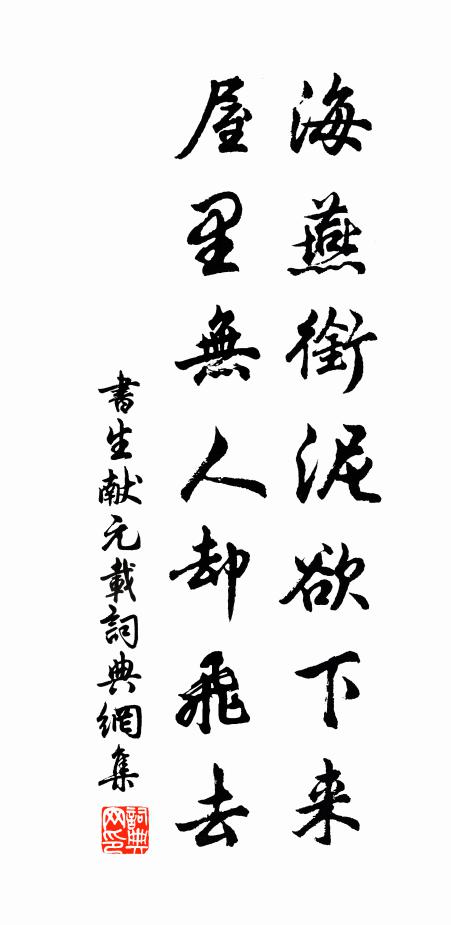 海燕銜泥欲下来
屋里無人却飛去
書生献元載詞典網集
詞典网印